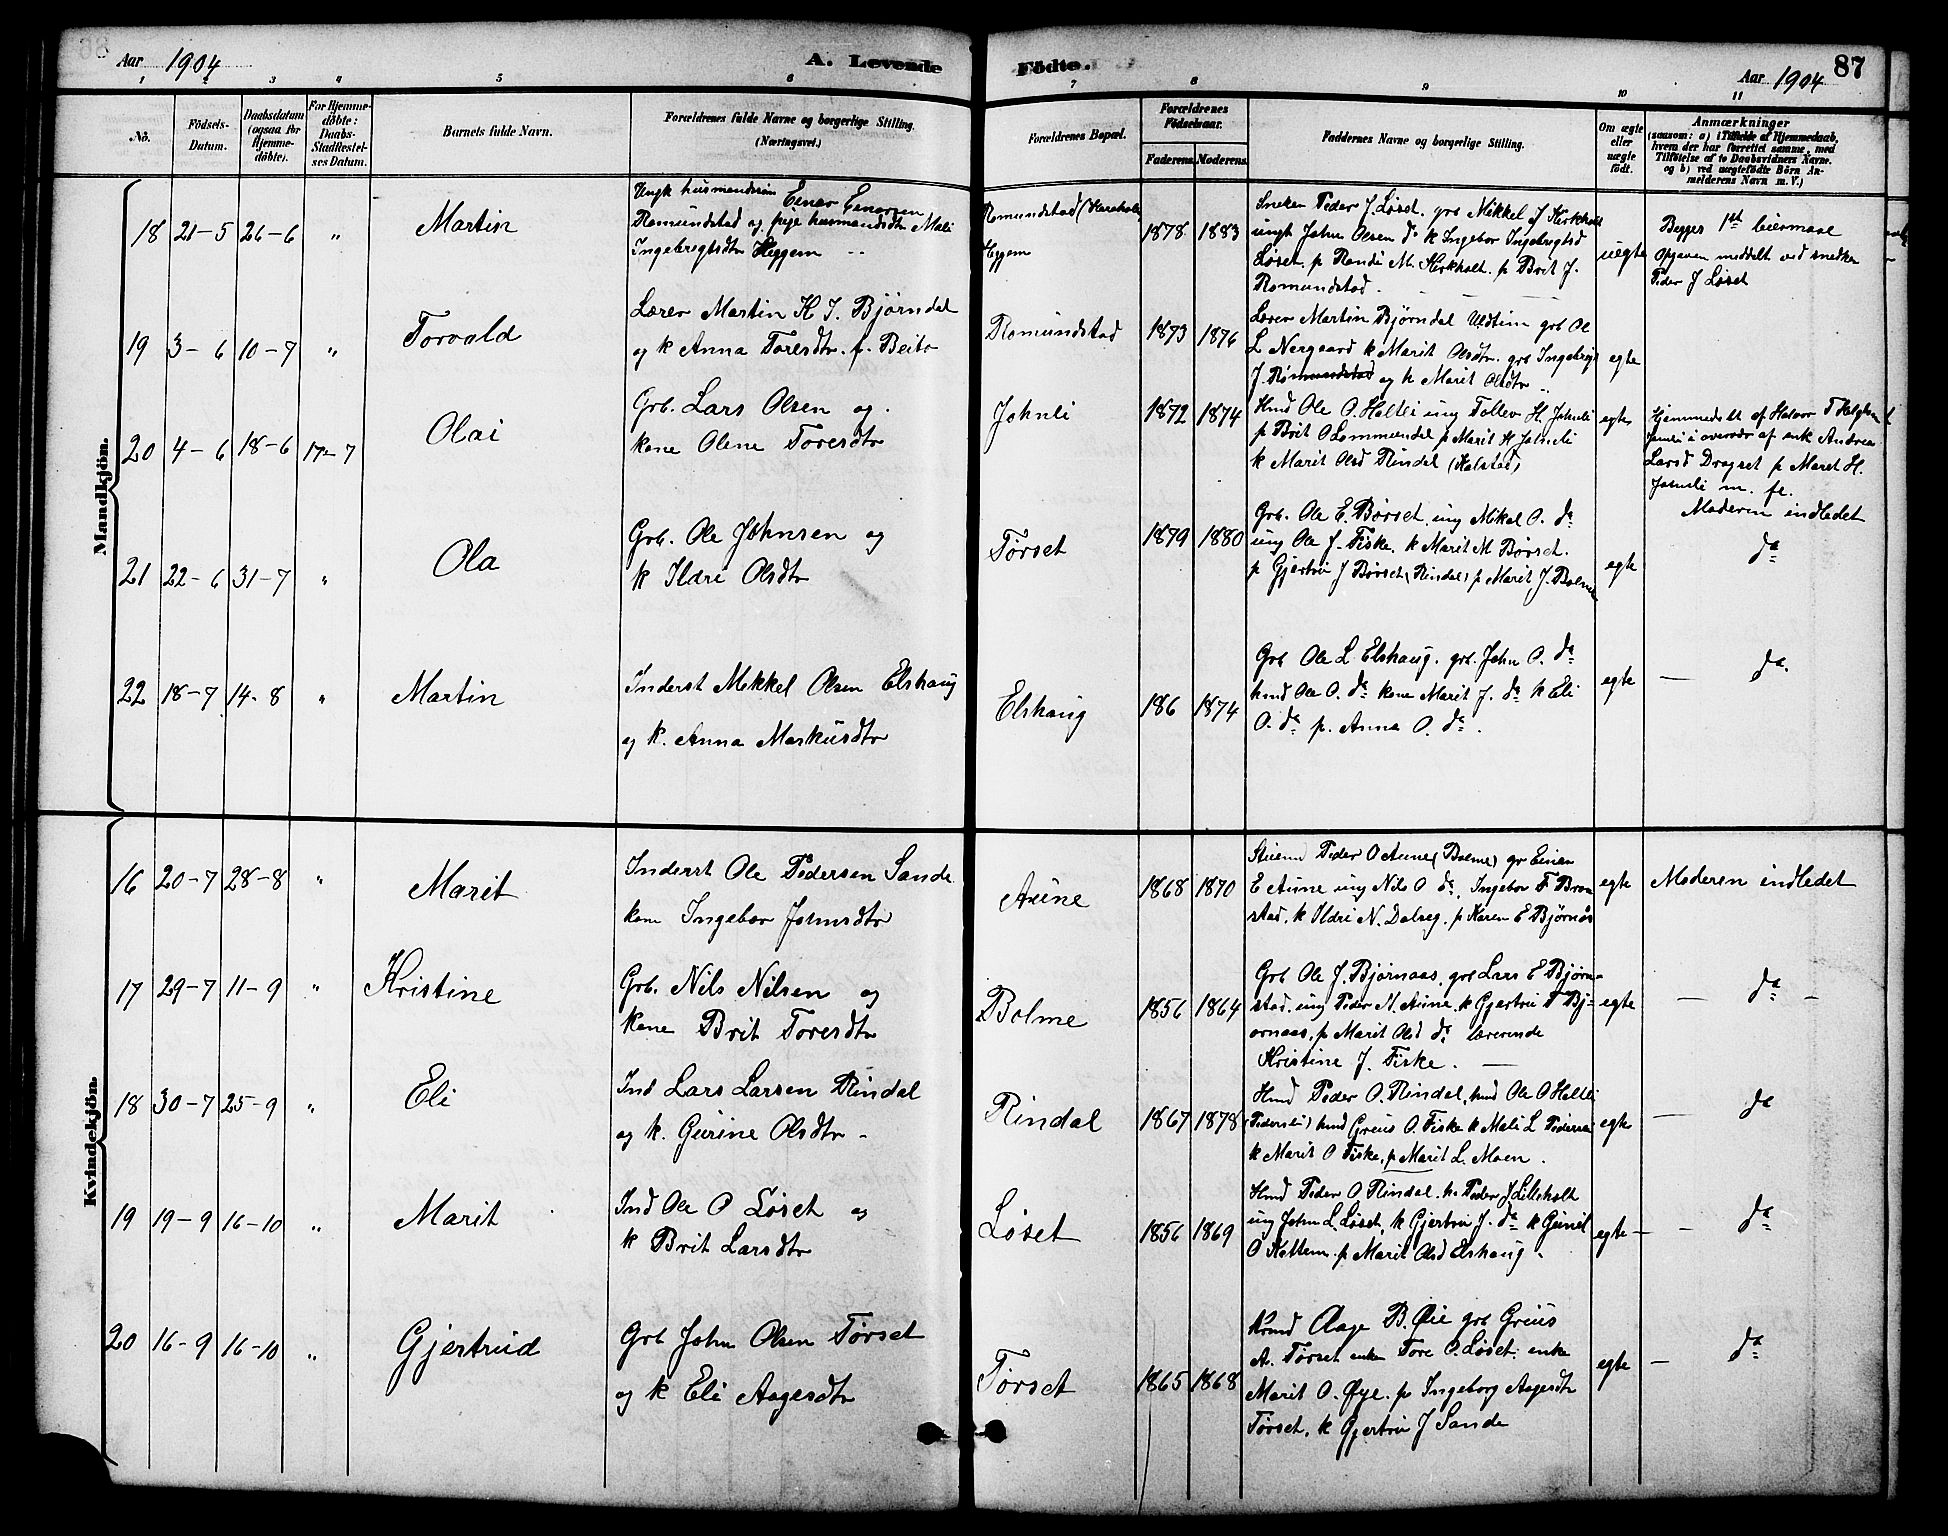 Aar 1904
A. Levende
Födte.
Aar 1904
87
1 2 3 4 5 6 7 8 9 10 11
No.
Födsels-
Datum.
Daabsdatum
(ogsaa for
Hjemme-
döbte).
For Hjemme-
döbte:
Daabs-
Stadfæstel-
ses Datum.
Barnets fulde Navn.
Forældrenes fulde Navne og borgerlige Stilling.
(Næringsvei.)
Forældrenes Bopæl.
Forældrenes
Födselsaar.
Faderens. Moderens.
Faddernes Navne og borgerlige Stilling.
Om ægte
eller
uægte
födt.
Anmærkninger
(saasom: a) i Tilfælde af Hjemmedaab,
hvem der har forrettet samme, med
Tilföielse af to Daabsvidners Navne.
og b) ved uægtefödte Börn An-
melderens Navn m. V.)
Mandkjön.
18 21-5 26-6 " Martin
Ungk husmandssøn Einar Einarsen
Romundstad og pige husmandsdtr Mali
Ingebrigtsdtr Heggem
Romundstad
Heggem
1878 1883
Sneker Peder J. Løset. grb Mikkel J Kirkholt
ungk John Olsen do k Ingebor Ingebrigtsd
Løset. p Randi M. Kirkholt. p Brit J.
Romundstad.
uegte
Begges 1ste leiermaal
Opgaven meddelt ved snedker
Peder J Løset
19 3-6 10-7 " Torvald
Lærer Martin H J. Bjørndal
og k Anna Toresdtr. f. Beito
Romundstad
1873 1876
Lærer Martin Bjørndal grb Ole
L Nergaard k Marit Olsdtr. grb Ingebrigt
J. Romundstad og k Marit Olsdtr
egte
20 4-6 18-6 17-7 Olai
Grb. Lars Olsen og
kone Olene Toresdtr
Johnli
1872 1874
Hmd Ole O. Holtli ung Tollev H. Johnli
p Brit O Lommundal p Marit H Johnli
k Marit Olsd Rindal
egte
Hjemmedøbt af Halvor T
Johnli i overvær af enk Andrea
Larsd Dragset p Maret H.
Johnli m. fl.
Moderen indledet
21 22-6 31-7 " Ola
Grb. Ole Johnsen og
k Ildri Olsdtr
Tørset
1879 1880
Grb. Ole E. Børset. ung Mikal O. do
ung Ole J. Fiske. k Marit M Børset.
p Gjertrü J Børset (Rindal) p Marit J. Bolme
egte
do
22 18-7 14-8 " Martin
Inderst Mikkel Olsen Elshaug
og k. Anna Markusdtr
Elshaug
186 1874
Grb Ole L. Elshaug. grb. John O. do
hmd Ole O. do kone Marit J. do k Eli
O. do p. Anna O. do.
egte
— do.
Kvindekjön.
16 20-7 28-8 " Marit
Inderst Ole Pedersen Sande
kone Ingebor Johnsdtr
Aune
1868 1870
Peder O Aune (Bolme) gr Einar
E Aune ung Nils O do. Ingebor F Bron
stad. k Ildri N. Dalseg. p Karen E Bjørnås
egte
Moderen indledet
17 29-7 11-9 " Kristine
Grb. Nils Nilsen og
kone Brit Toresdtr
Bolme
1856 1864
Grb Ole J. Bjørnaas, grb Lars E Bjørn-
stad. ung Peder N. Aune. k Gjertrü T Bj-
ørnaas, p Marit Olsd do lærerinde
Kristine J. Fiske. —
egte
— do —
18 30-7 25-9 " Eli
Ind Lars Larsen Rindal
og k. Gurine Olsdtr -
Rindal
1867 1878
Hmd Peder O. Rindal, hmd Ole O Holtli
hmd Greüs O. Fiske k Mali L
k Marit O Fiske, p Marit L. Moen.
egte
— do
19 19-9 16-10 " Marit
Ind Ole O Løset og
k Brit Larsdtr
Løset
1856 1869
Hmd Peder O Rindal. Peder J Lilleholt
ung John L. Løset, k Gjertrü J. do k Guril
O Kattem. p Marit Olsd Elshaug -
egte
— do
20 16-9 16-10 " Gjertrud
Grb John Olsen Tørset
og k Eli Aagesdtr
Tørset
1865 1868
Aage B. Øie grb Greüs
A. Tørset enkem Tore O. Løset. enke
Marit O. Øye. p Ingeborg Aagesdtr
Tørset. k Gjertrü J Sande
egte
— do